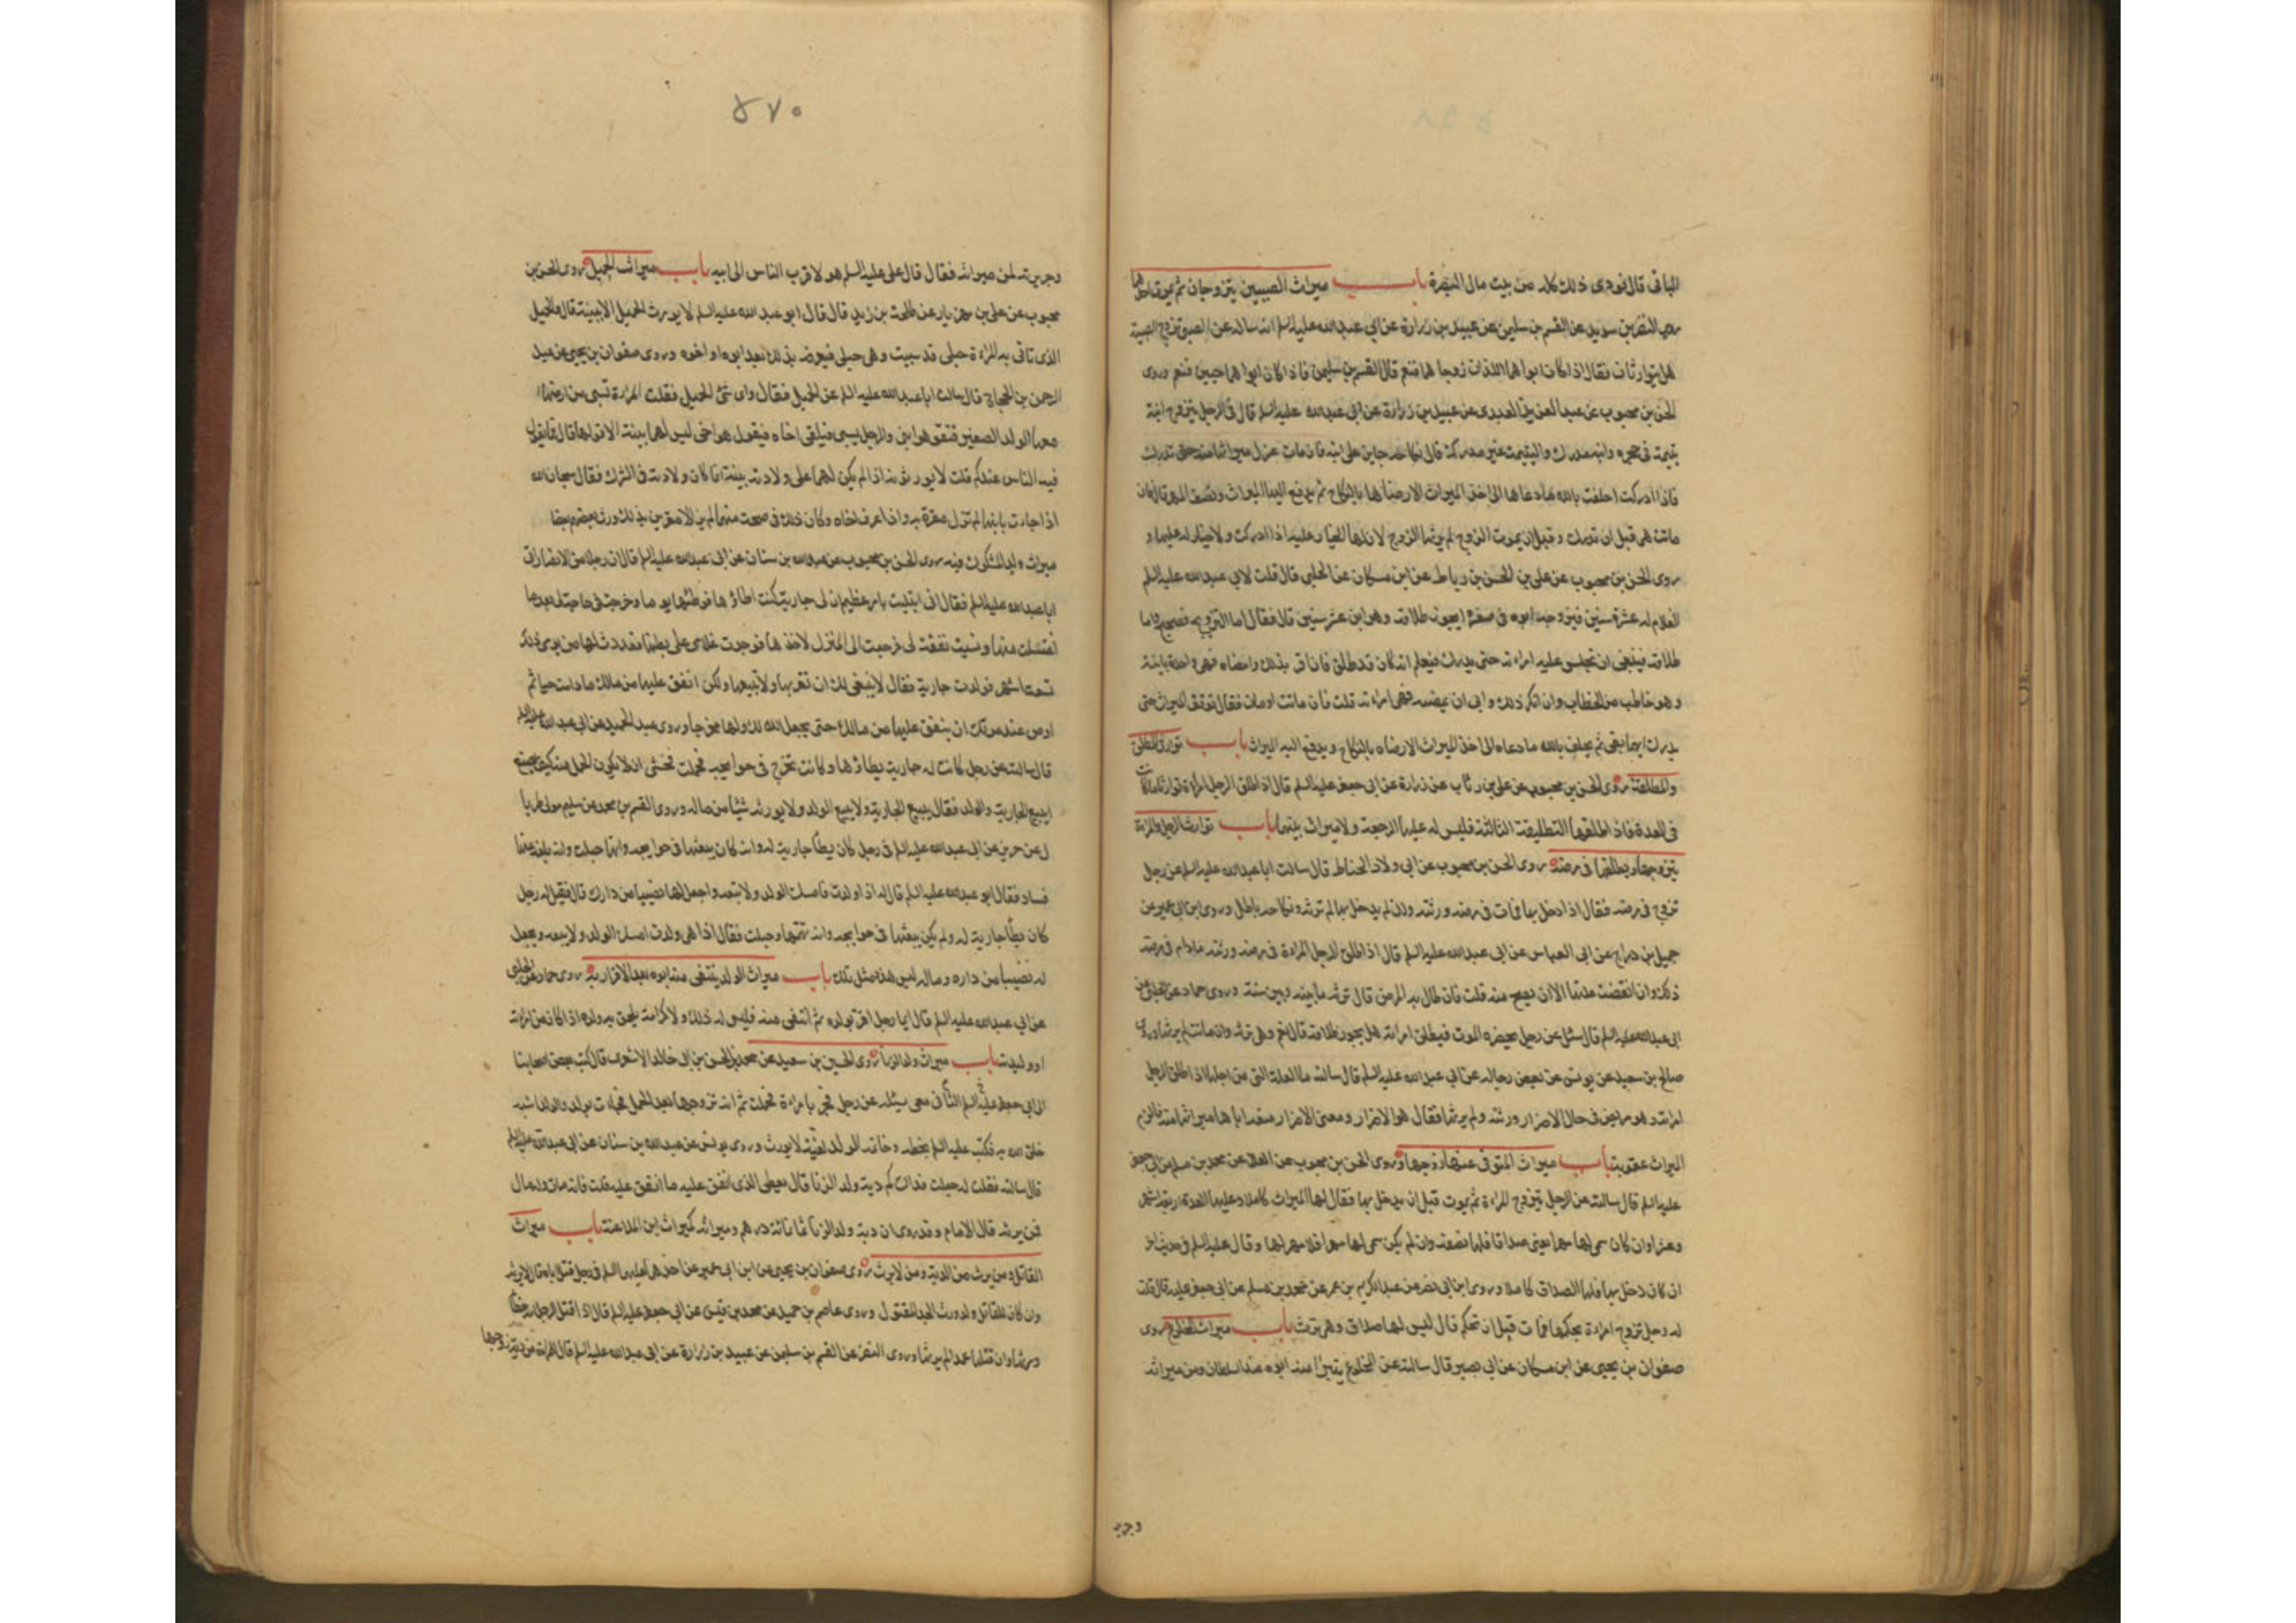 الباقى قال فودى ذلك كله من بيت مال البصرة باب ميراث الصبيين يتزوجان ثم يموت احدهما
روى النضر بن سويد عن القسم بن سليمن عن عبيد بن زرارة عن ابي عبد الله عليه السلم انه ساله عن الصبي تزوج الصبية
هل يتوارثان فقال اذا كان ابواهما اللذان زوجاهما فنعم قال القسم بن سليمن فاذا كان ابواهما حيين فنعم وروى
الحسن بن محبوب عن عبد العزيز العبدى عن عبيد بن زرارة عن ابى عبد الله عليه السلم قال في الرجل يتزوج ابنة
يتيمة في حجره وابنه مدرك واليتيمة غير مدركة قال نكاحه جايز على ابنه فان مات عزل ميراثها منه حتى تدرك
فاذا ادركت احلفت بالله ما دعاها الى اخذ الميراث الا رضاها بالنكاح ثم يدفع اليها الميراث ونصف المهر قال فان
ماتت هى قبل ان تدرك وقبل ان يموت الزوج لم يرثها الزوج لان لها الخيار عليه اذا ادركت ولا خيار له عليها و
روى الحسن بن محبوب عن على بن الحسن بن رباط عن ابن مسكان عن الحلبى قال قلت لابي عبد الله عليه السلم
الغلام له عشرة سنين فيزوجه ابوه في صغره ايجوز طلاقه وهو ابن عشر سنين قال فقال اما التزويج فصحيح واما
طلاقه فينبغى ان تحبس عليه امراته حتى يدرك فيعلم انه كان قد طلق فان اقر بذلك وامضاه فهى واحدة باينة
وهو خاطب من الخطاب وان انكر ذلك وابى ان يمضيه فهى امراته قلت فان ماتت او مات فقال توقف الميراث حتى
يدرك ايهما بقى ثم يحلف بالله ما دعاه الى اخذ الميراث الا رضاه بالنكاح ويدفع اليه الميراث باب توارث المطلق
والمطلقة روى الحسن بن محبوب عن على بن رئاب عن زرارة عن ابى جعفر عليه السلم قال اذا طلق الرجل امراة توارثا ما كانت
فى العدة فاذا طلقها التطليقة الثالثة فليس له عليها الرجعة ولا ميراث بينهما باب توارث الرجل والمراة
يتزوجها ويطلقها فى مرضه روى الحسن بن محبوب عن ابى ولاد الحناط قال سالت ابا عبد الله عليه السلم عن رجل
تزوج فى مرضه فقال اذا دخل بها فمات فى مرضه ورثته وان لم يدخل بها لم ترثه ونكاحه باطل وروى ابن ابى عمير عن
جميل بن دراج عن ابى العباس عن ابى عبد الله عليه السلم قال اذا طلق الرجل المراة فى مرضه ورثته ما دام فى مرضه
ذلك وان انقضت عدتها الا ان يصح منه قلت فان طال به المرض قال ترثه ما بينه وبين سنة وروى حماد عن الحلبى عن
ابى عبد الله عليه السلم قال سئل عن رجل يحضره الموت فيطلق امراته هل يجوز طلاقه قال نعم وهى ترثه وان ماتت لم يرثها وروى
صالح بن سعيد عن يونس عن بعض رجاله عن ابي عبد الله عليه السلم قال سالته ما العلة التى من اجلها اذا طلق الرجل
امراته وهو مريض فى حال الاضرار ورثته ولم يرثها فقال هو الاضرار ومعنى الاضرار منعه اياها ميراثها منه فالزم
الميراث عقوبة باب ميراث المتوفى عنها زوجها روى الحسن بن محبوب عن العلا عن محمد بن مسلم عن ابى جعفر
عليه السلم قال سالته عن الرجل يتزوج المراة ثم يموت قبل ان يدخل بها فقال لها الميراث كاملا وعليها العدة اربعة اشهر
وعشرا وان كان سمى لها مهرا يعنى صداقا فلها نصفه وان لم يكن سمى لها مهرا فلا مهر لها وقال عليه السلم فى حديث اخر
ان كان دخل بها فلها الصداق كاملا وروى ابن ابى نصر عن عبد الكريم بن عمر عن محمد بن مسلم عن ابى جعفر عليه قال قلت
له رجل تزوج امراة بحكمها فمات قبل ان تحكم قال ليس لها صداق وهى ترث باب ميراث المخلوع روى
صفوان بن يحيى عن ابن مسكان عن ابى بصير قال سالته عن المخلوع يتبرا منه ابوه عند السلطان ومن ميراثه
وجرير
٤٧٠
وجريرته لمن ميراثه فقال قال على عليه السلم هو لاقرب الناس الى ابيه باب ميراث الحميل روى الحسن بن
محبوب عن على بن مهزيار عن طلحة بن زيد قال قال ابو عبد الله عليه السلم لا يورث الحميل الا ببينة قال والحميل
الذى تاتى به المراة حبلى قد سبيت وهى حبلى فيعرفه بذلك بعد ابوه او اخوه وروى صفوان بن يحيى عن عبد
الرحمن بن الحجاج قال سالت ابا عبد الله عليه السلم عن الحميل فقال واى شئ الحميل فقلت المراة تسبى من ارضها
معها الولد الصغير فتقول هو ابنى والرجل يسبى فيلقى اخاه فيقول هو اخى ليس لهما بينة الا قولهما قال فما يقول
فيه الناس عندكم قلت لا يورثونه اذا لم يكن لهما على ولادته بينة انما كان ولادته فى الشرك فقال سبحان الله
اذا جاءت بابنها لم تزل مقرة به واذا عرف اخاه وكان ذلك فى صحة منهما لم يزالا مقرين بذلك ورث بعضهم بعضا
ميراث ولد المشكوك فيه روى الحسن بن محبوب عن عبد الله بن سنان عن ابى عبد الله عليه السلم قال ان رجلا من الانصار اتى
ابا عبد الله عليه السلم فقال انى ابتليت بامر عظيم ان لى جارية كنت اطاؤها فوطئتها يوما وخرجت فى حاجة لى بعد ما
اغتسلت منها ونسيت نفقة لى فرجعت الى المنزل لاخذها فوجدت غلامى على بطنها فعددت لها من يومى ذلك
تسعة اشهر فولدت جارية فقال لا ينبغى لك ان تقربها ولا تبيعها ولكن انفق عليها من مالك ما دامت حيا ثم
اوص عند موتك ان ينفق عليها من مالك حتى يجعل الله لك ولها مخرجا وروى عبد الحميد عن ابى عبد الله عليه السلم
قال سالته عن رجل كانت له جارية يطاؤها وكانت تخرج فى حوايجه فحملت فخشى ان لا يكون الحمل منه كيف يصنع
ايبيع الجارية والولد فقال يبيع الجارية ولا يبيع الولد ولا يورثه شيئا من ماله وروى القسم بن محمد عن سليم مولى طربا
ل عن حريز عن ابى عبد الله عليه السلم فى رجل كان يطأ جارية له وانه كان يبعثها فى حوايجه وانها حبلت وانه بلغه عنها
فساد فقال ابو عبد الله عليه السلم قال له اذا ولدت فامسك الولد ولا تبعه واجعل لها نصيبا من دارك قال فقيل له رجل
كان يطأ جارية له ولم يكن يبعثها فى حوايجه وانه اتهمها وحبلت فقال اذا هى ولدت امسك الولد ولا يبعه ويجعل
له نصيبا من داره وماله ليس هذه مثل تلك باب ميراث الولد ينتفى منه ابوه بعد الاقرار به روى حماد عن الحلبى
عن ابي عبد الله عليه السلم قال ايما رجل اقر بولده ثم انتفى منه فليس له ذلك ولا كرامة يلحق به ولده اذا كان من امراته
او وليدته باب ميراث ولد الزنا روى الحسين بن سعيد عن محمد بن الحسن بن ابى خالد الاشعرى قال كتب بعض اصحابنا
الى ابى جعفر عليه السلم الثانى معى يسئله عن رجل فجر بامراة فحملت ثم انه تزوجها بعد الحمل فجاءت بولد والولد اشبه
خلق الله به فكتب عليه السلم بخطه وخاتمه الولد لغية لا يورث وروى يونس عن عبد الله بن سنان عن ابى عبد الله عليه السلم
قال سالته فقلت له جعلت فداك كم دية ولد الزنا قال يعطى الذى انفق عليه ما انفق عليه قلت فانه مات وله مال
فمن يرثه قال الامام وقد روى ان دية ولد الزنا ثمانمائة درهم وميراثه كميراث ابن الملاعنة باب ميراث
القاتل ومن يرث من الدية ومن لا يرث روى صفوان بن يحيى عن ابن ابى عمير عن احدهما عليهما السلم فى رجل قتل اباه قال لا يرثه
وان كان للقاتل ولد ورث الجد المقتول وروى عاصم بن حميد عن محمد بن قيس عن ابى جعفر عليه السلم قال اذا قتل الرجل امه خطأ
ورثها وان قتلها عمدا لم يرثها وروى النضر عن القسم بن سليمن عن عبيد بن زرارة عن ابى عبد الله عليه السلم قال للمراة من دية زوجها